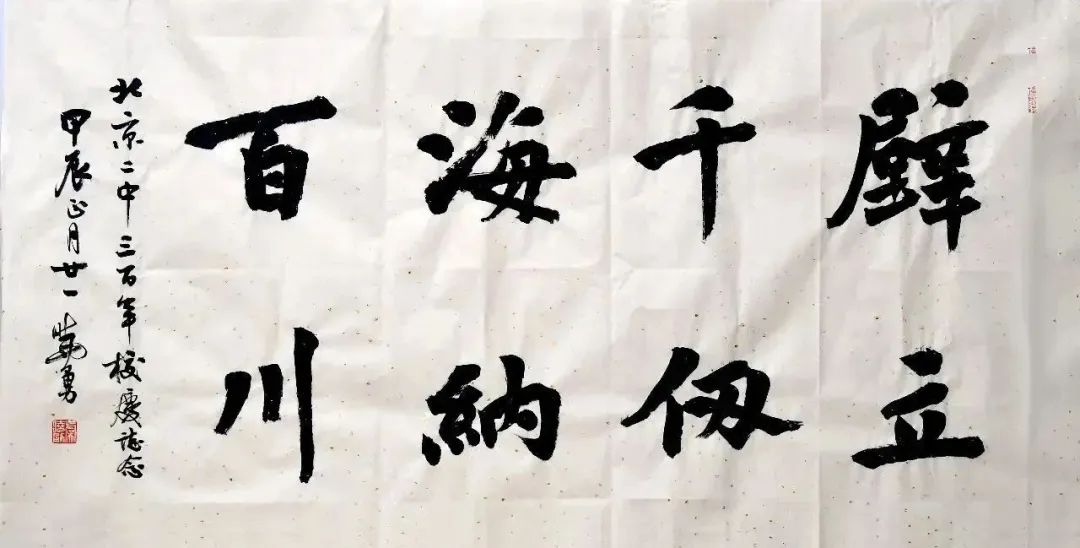 壁立
千仞
海納
百川
北京二中三百年校慶誌念
甲辰正月廿一
勇